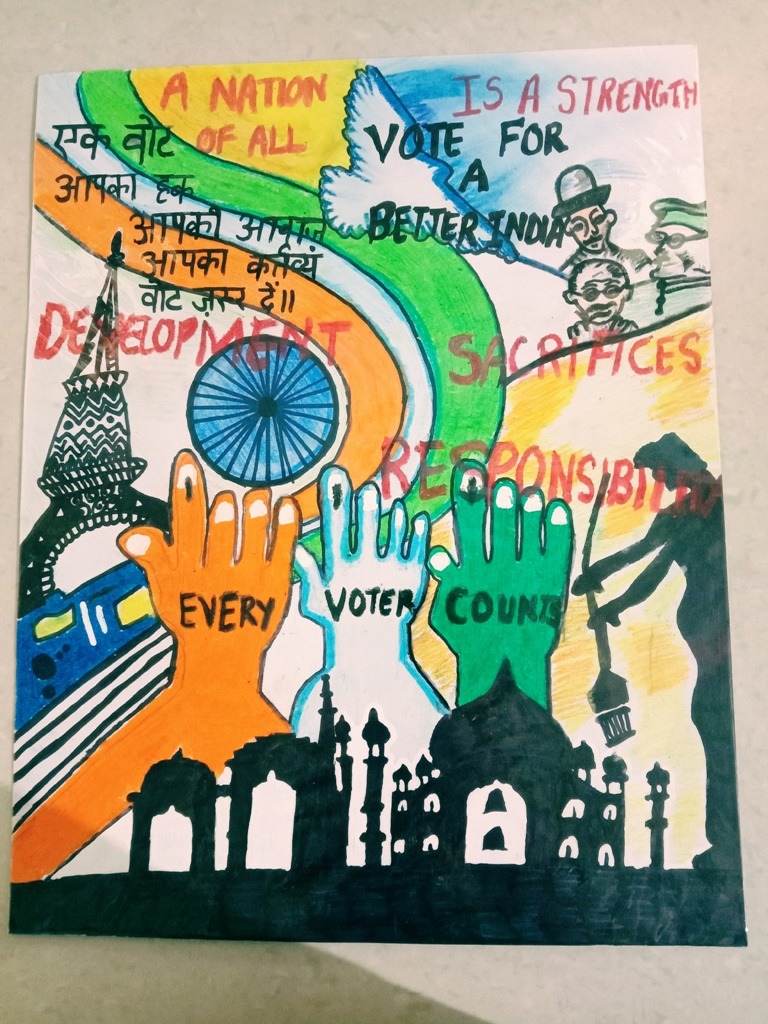 A NATION
OF ALL
IS A STRENGTH
एक वोट
आपका हक
आपकी आवाज
आपका कर्तव्यं
वोट ज़रूर दें॥
VOTE FOR
A
BETTER INDIA
DEVELOPMENT
SACRIFICES
RESPONSIBILITY
EVERY VOTER COUNTS